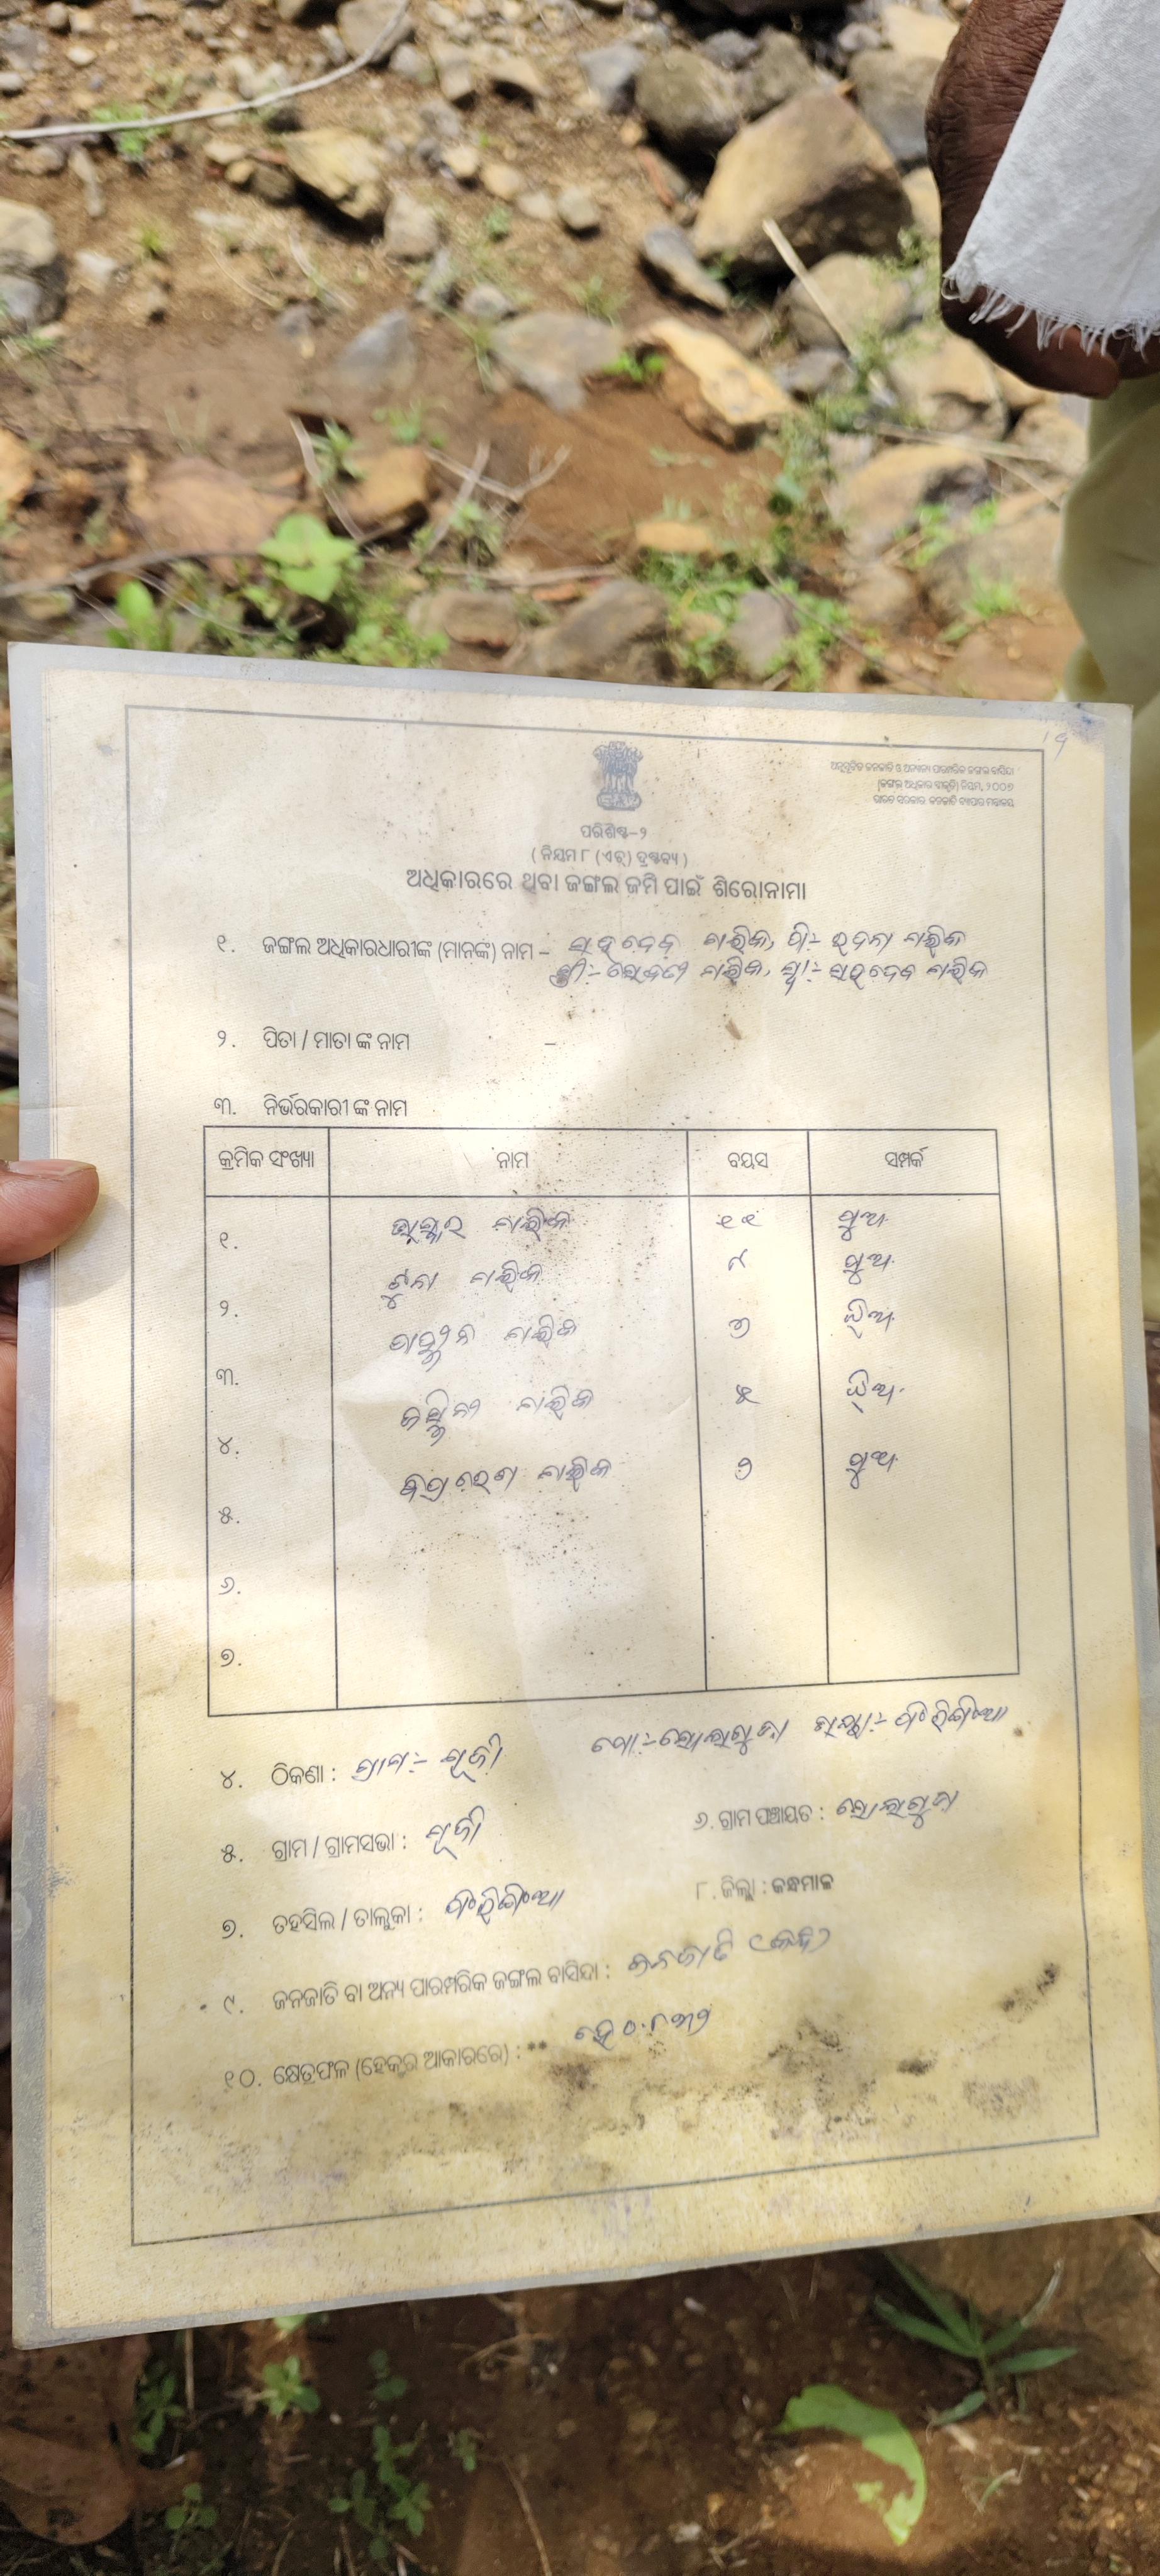 ଅନୁସୂଚିତ ଜନଜାତି ଓ ଅନ୍ୟାନ୍ୟ ପାରମ୍ପରିକ ଜଙ୍ଗଲ ବାସିନ୍ଦା
(ଜଙ୍ଗଲ ଅଧିକାର ସ୍ୱୀକୃତି) ନିୟମ, ୨୦୦୭
ଭାରତ ସରକାର ଜନଜାତି ବ୍ୟାପାର ମନ୍ତ୍ରାଳୟ
ପରିଶିଷ୍ଟ-୨
( ନିୟମ ୮ (ଏଚ୍) ଦ୍ରଷ୍ଟବ୍ୟ )
ଅଧିକାରରେ ଥିବା ଜଙ୍ଗଲ ଜମି ପାଇଁ ଶିରୋନାମା
୧. ଜଙ୍ଗଲ ଅଧିକାରଧାରୀଙ୍କ (ମାନଙ୍କ) ନାମ - ସହଦେବ ମଲ୍ଲିକ, ପି:- ମଲ୍ଲିକ
ସ୍ତ୍ରୀ:- ମଲ୍ଲିକ, ସ୍ୱା:- ସହଦେବ ମଲ୍ଲିକ
୨. ପିତା / ମାତା ଙ୍କ ନାମ -
୩. ନିର୍ଭରକାରୀ ଙ୍କ ନାମ
କ୍ରମିକ ସଂଖ୍ୟା ନାମ ବୟସ ସମ୍ପର୍କ
୧. ଭାସ୍କର ମଲ୍ଲିକ ୧୧ ପୁଅ
୨. ଟୁନା ମଲ୍ଲିକ ୯ ପୁଅ
୩. ମଲ୍ଲିକ ୭ ଝିଅ
୪. ମଲ୍ଲିକ ୫ ଝିଅ
୫. ମଲ୍ଲିକ ୨ ପୁଅ
୬.
୭.
୪. ଠିକଣା : ଗ୍ରାମ:- ପୋ:- ଥାନା:- ଫିରିଙ୍ଗିଆ
୫. ଗ୍ରାମ / ଗ୍ରାମସଭା :
୬. ଗ୍ରାମ ପଞ୍ଚାୟତ :
୭. ତହସିଲ / ତାଲୁକା : ଫିରିଙ୍ଗିଆ
୮. ଜିଲ୍ଲା : କନ୍ଧମାଳ
୯. ଜନଜାତି ବା ଅନ୍ୟ ପାରମ୍ପରିକ ଜଙ୍ଗଲ ବାସିନ୍ଦା : ଜନଜାତି (କନ୍ଧ)
୧୦. କ୍ଷେତ୍ରଫଳ (ହେକ୍ଟର ଆକାରରେ) : ** ହେ ୦.୮୩୨